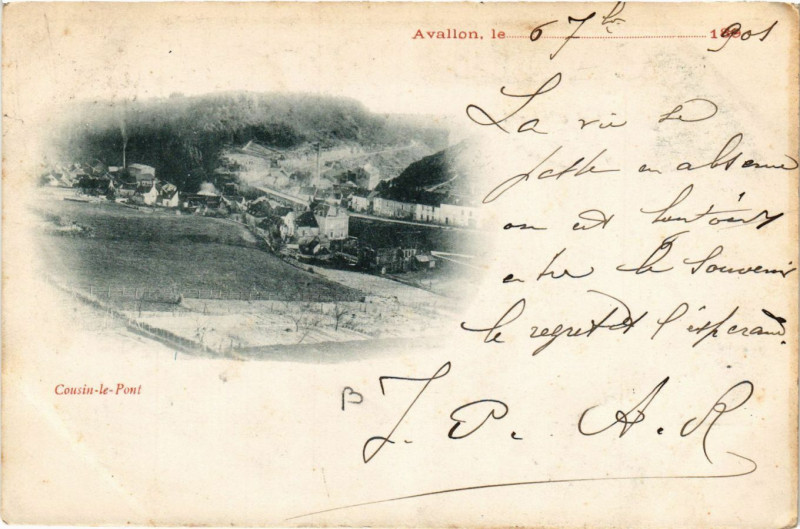 Avallon, le 6 7bre 1901
La vie se
passe en absence
on est toujours
entre le souvenir
le regret et l'espérance.
Cousin-le-Pont
B
J. P. A. R